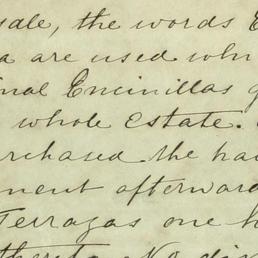 sale, the words E
a are used whi
inal Encinillas g
whole Estate.
urchased the ha
ment afterward
Terrazas one h
thereto. No di